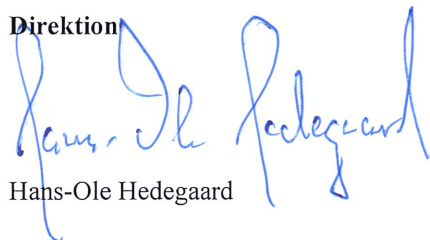 Direktion
Hans-Ole Hedegaard
Hans-Ole Hedegaard